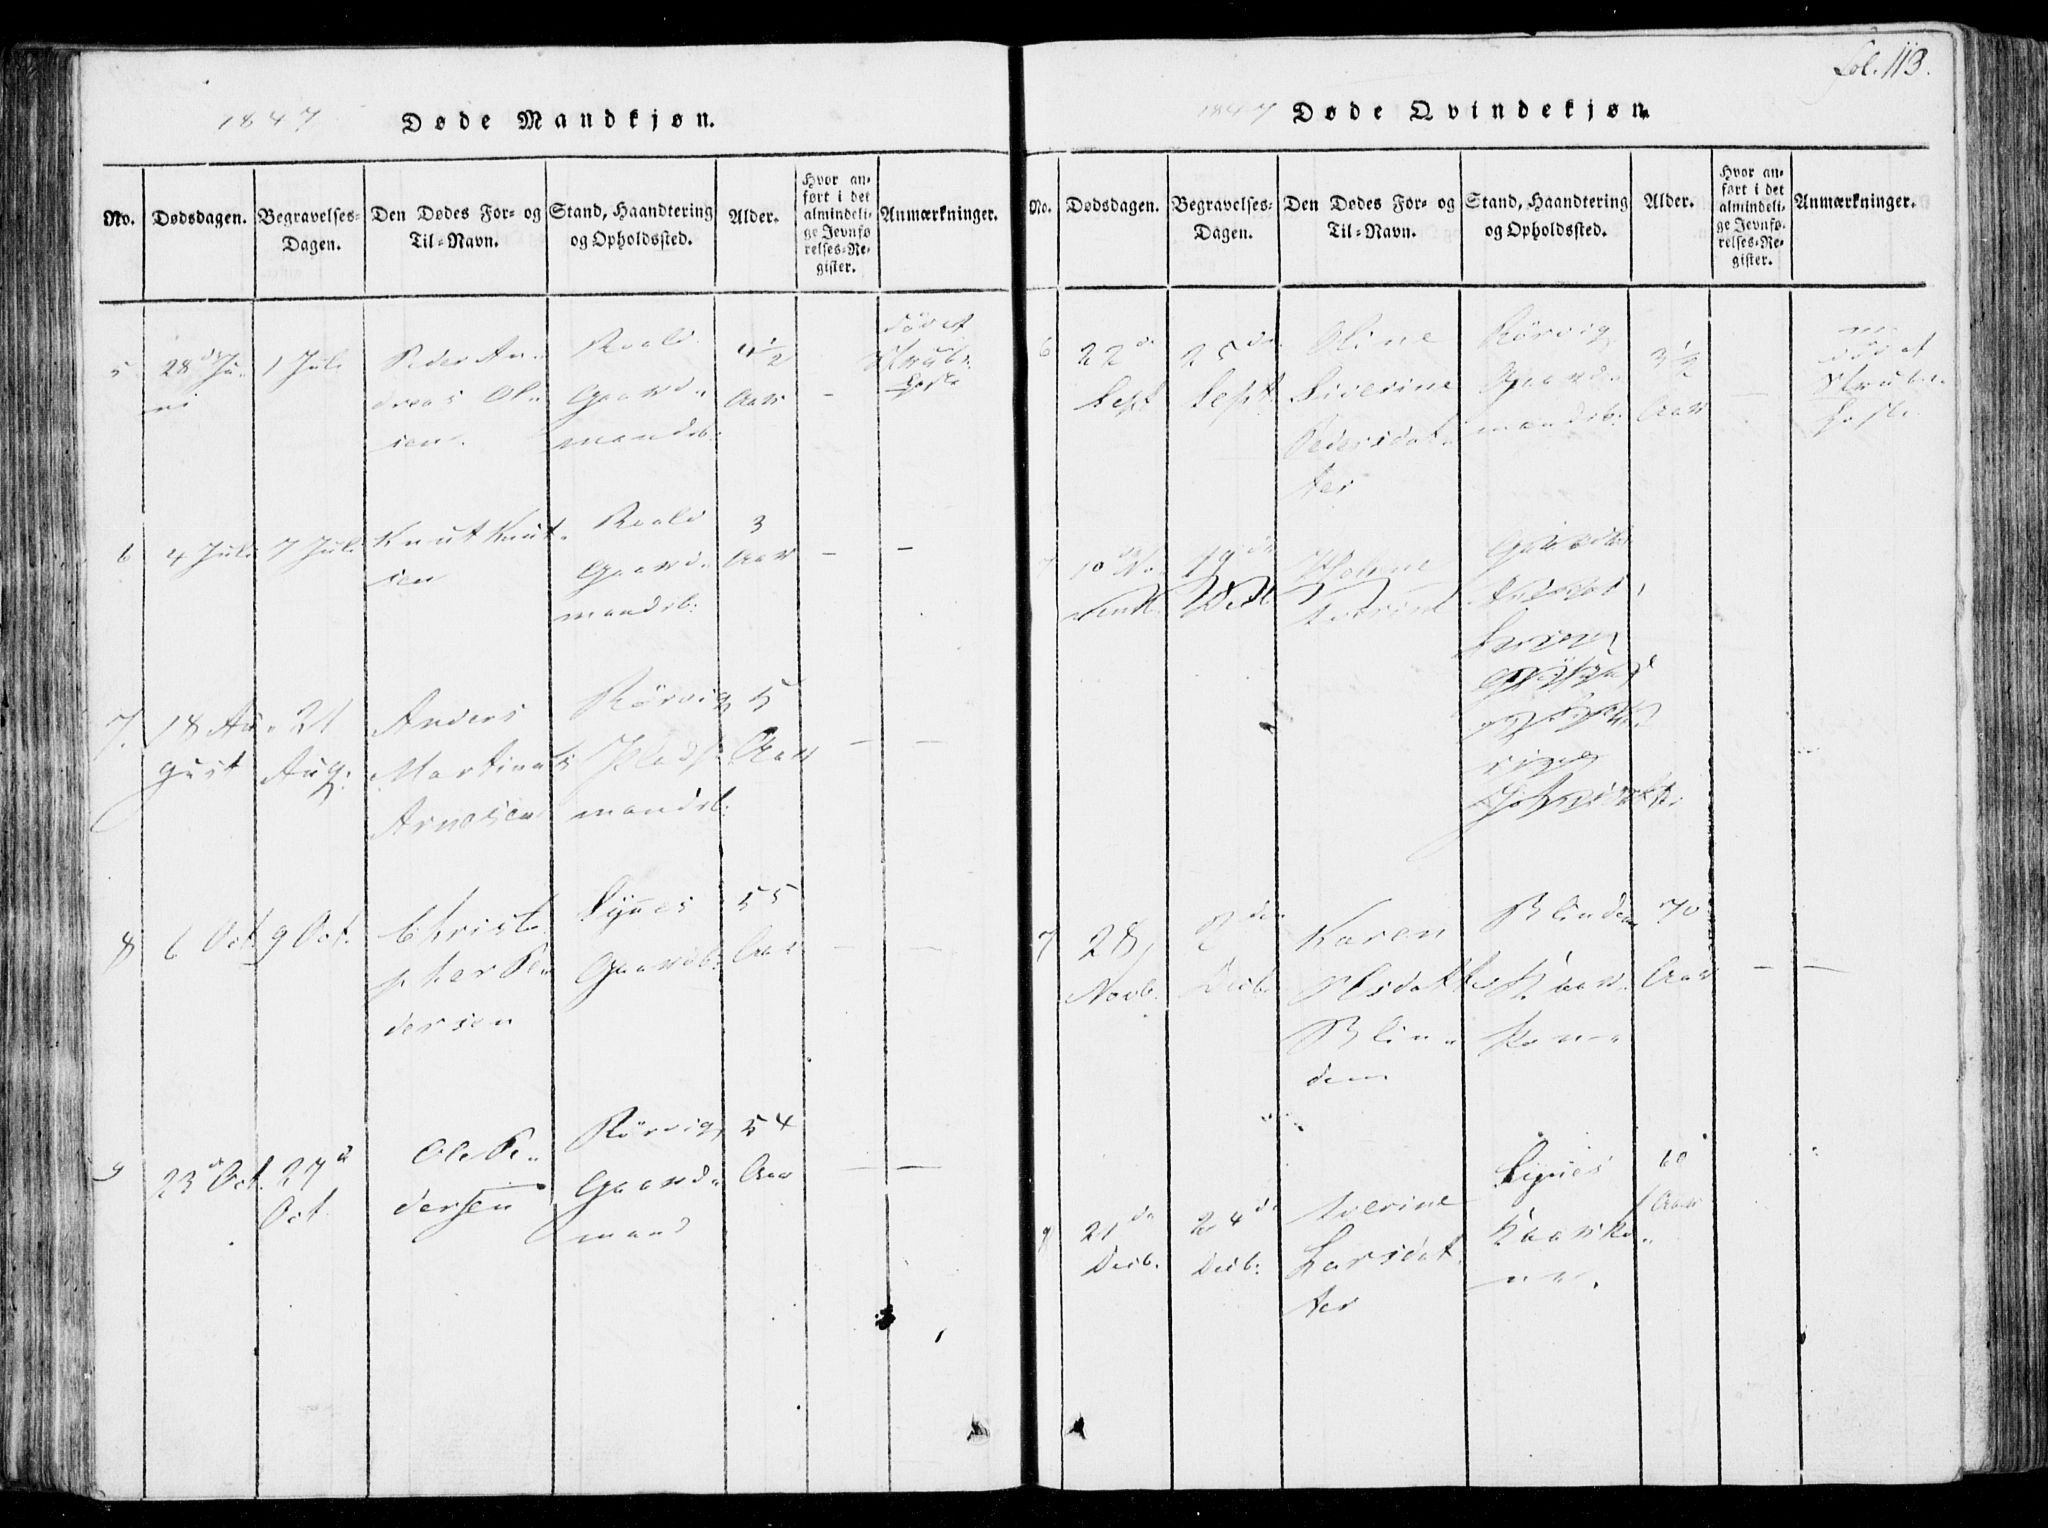 Fol. 113.
1847 Døde Mandkjøn.
No. Dødsdagen. Begravelses-Dagen. Den Dødes For- og Til-Navn. Stand, Haandtering og Opholdssted. Alder. Hvor anført i det almindelige Jevnførelses-Register. Anmærkninger.
5
28de Ju-
ni
1 Juli
Peder An-
dreas Ol-
sen
Roald
Gaard-
mandsb:
4½
Aar
–
død af
Strube-
hoste
6
4 Juli
7 Juli
Knut Knut-
sen
Roald
Gaard-
mandsb:
3
Aar
–
–
7.
18 Au-
gust
21
Aug:
Anders
Martinus
Arnesen
Rörvig
Plads-
mandsb:
5
Aar
–
–
8
6 Oct.
9 Oct.
Christ-
pher Pe-
dersen
Synes
Gaardb:
55
Aar
–
–
9
23de Oct.
27d
Oct.
Ole Pe-
dersen
Rörvig
Gaard-
mand
54
Aar
–
–
1847 Døde Qvindekjøn.
No. Dødsdagen. Begravelses-Dagen. Den Dødes For- og Til-Navn. Stand, Haandtering og Opholdssted. Alder. Hvor anført i det almindelige Jevnførelses-Register. Anmærkninger.
6
22de
Sept
25de
Sept.
Oline
Siverine
Pedersdat-
ter
Rörvig
Gaard-
mandsb:
3½
Aar
–
död af
Strube-
hoste
7
10de No-
19de
7
28
Novb.
2den
Decb.
Karen
Olsdatter
Blin-
dem
Blindem
Kaar-
kone
70
Aar
–
–
8
21de
Decb.
24de
Decb:
Severine
Larsdat-
ter
Synes
Kaarko-
ne.
60
Aar